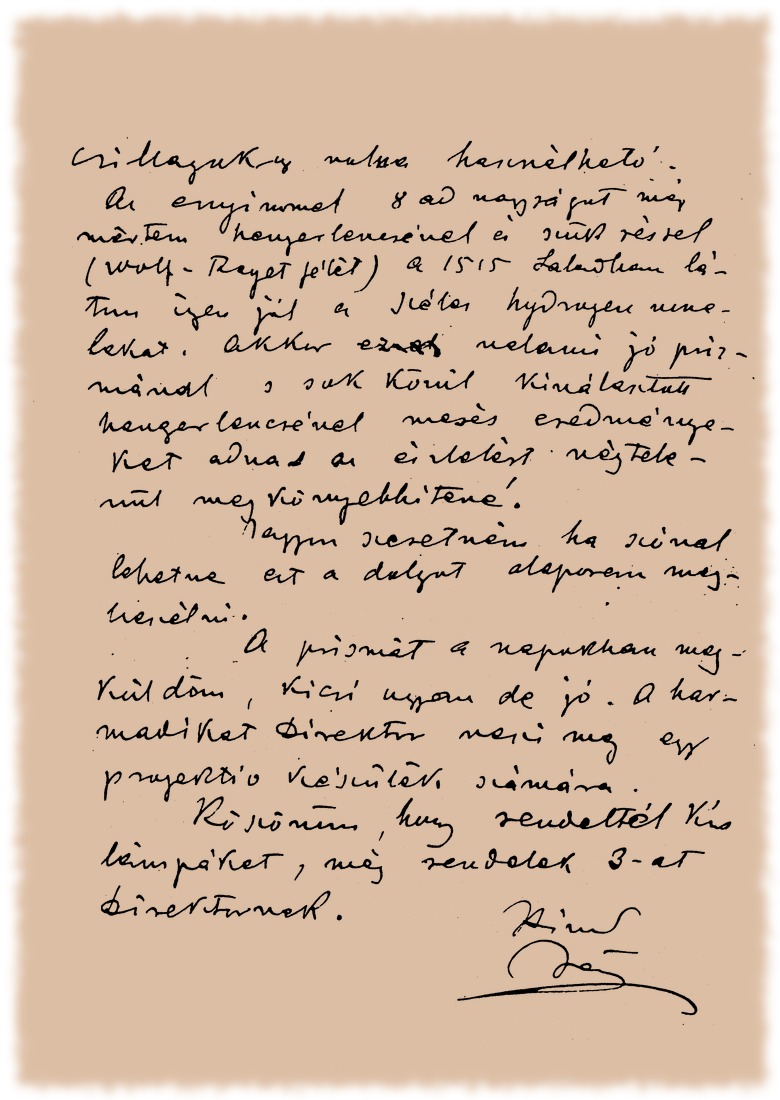 csillagokig volna használható.
Az enyimmel 8 ad nagyságut még
mértem hengerlencsével és szük réssel
(Wolf-Rayet félét) a 1515 Lalandban lá-
tom igen jól a széles hydrogen vona-
lakat. Akkor valami jó priz-
mával s sok közül kiválasztott
hengerlencsével mesés eredménye-
ket adna az észlelést végtele-
nül megkönyebbitené.
Nagyon szeretném ha szóval
lehetne ezt a dolgot alaposan meg-
beszélni.
A prizmát a napokban meg-
küldöm, kicsi ugyan de jó. A har-
madikat Direktor veszi meg egy
projektio készülék számára.
Köszönöm, hogy rendeltél kis
lámpákat, még rendelek 3-at
Direktornak.